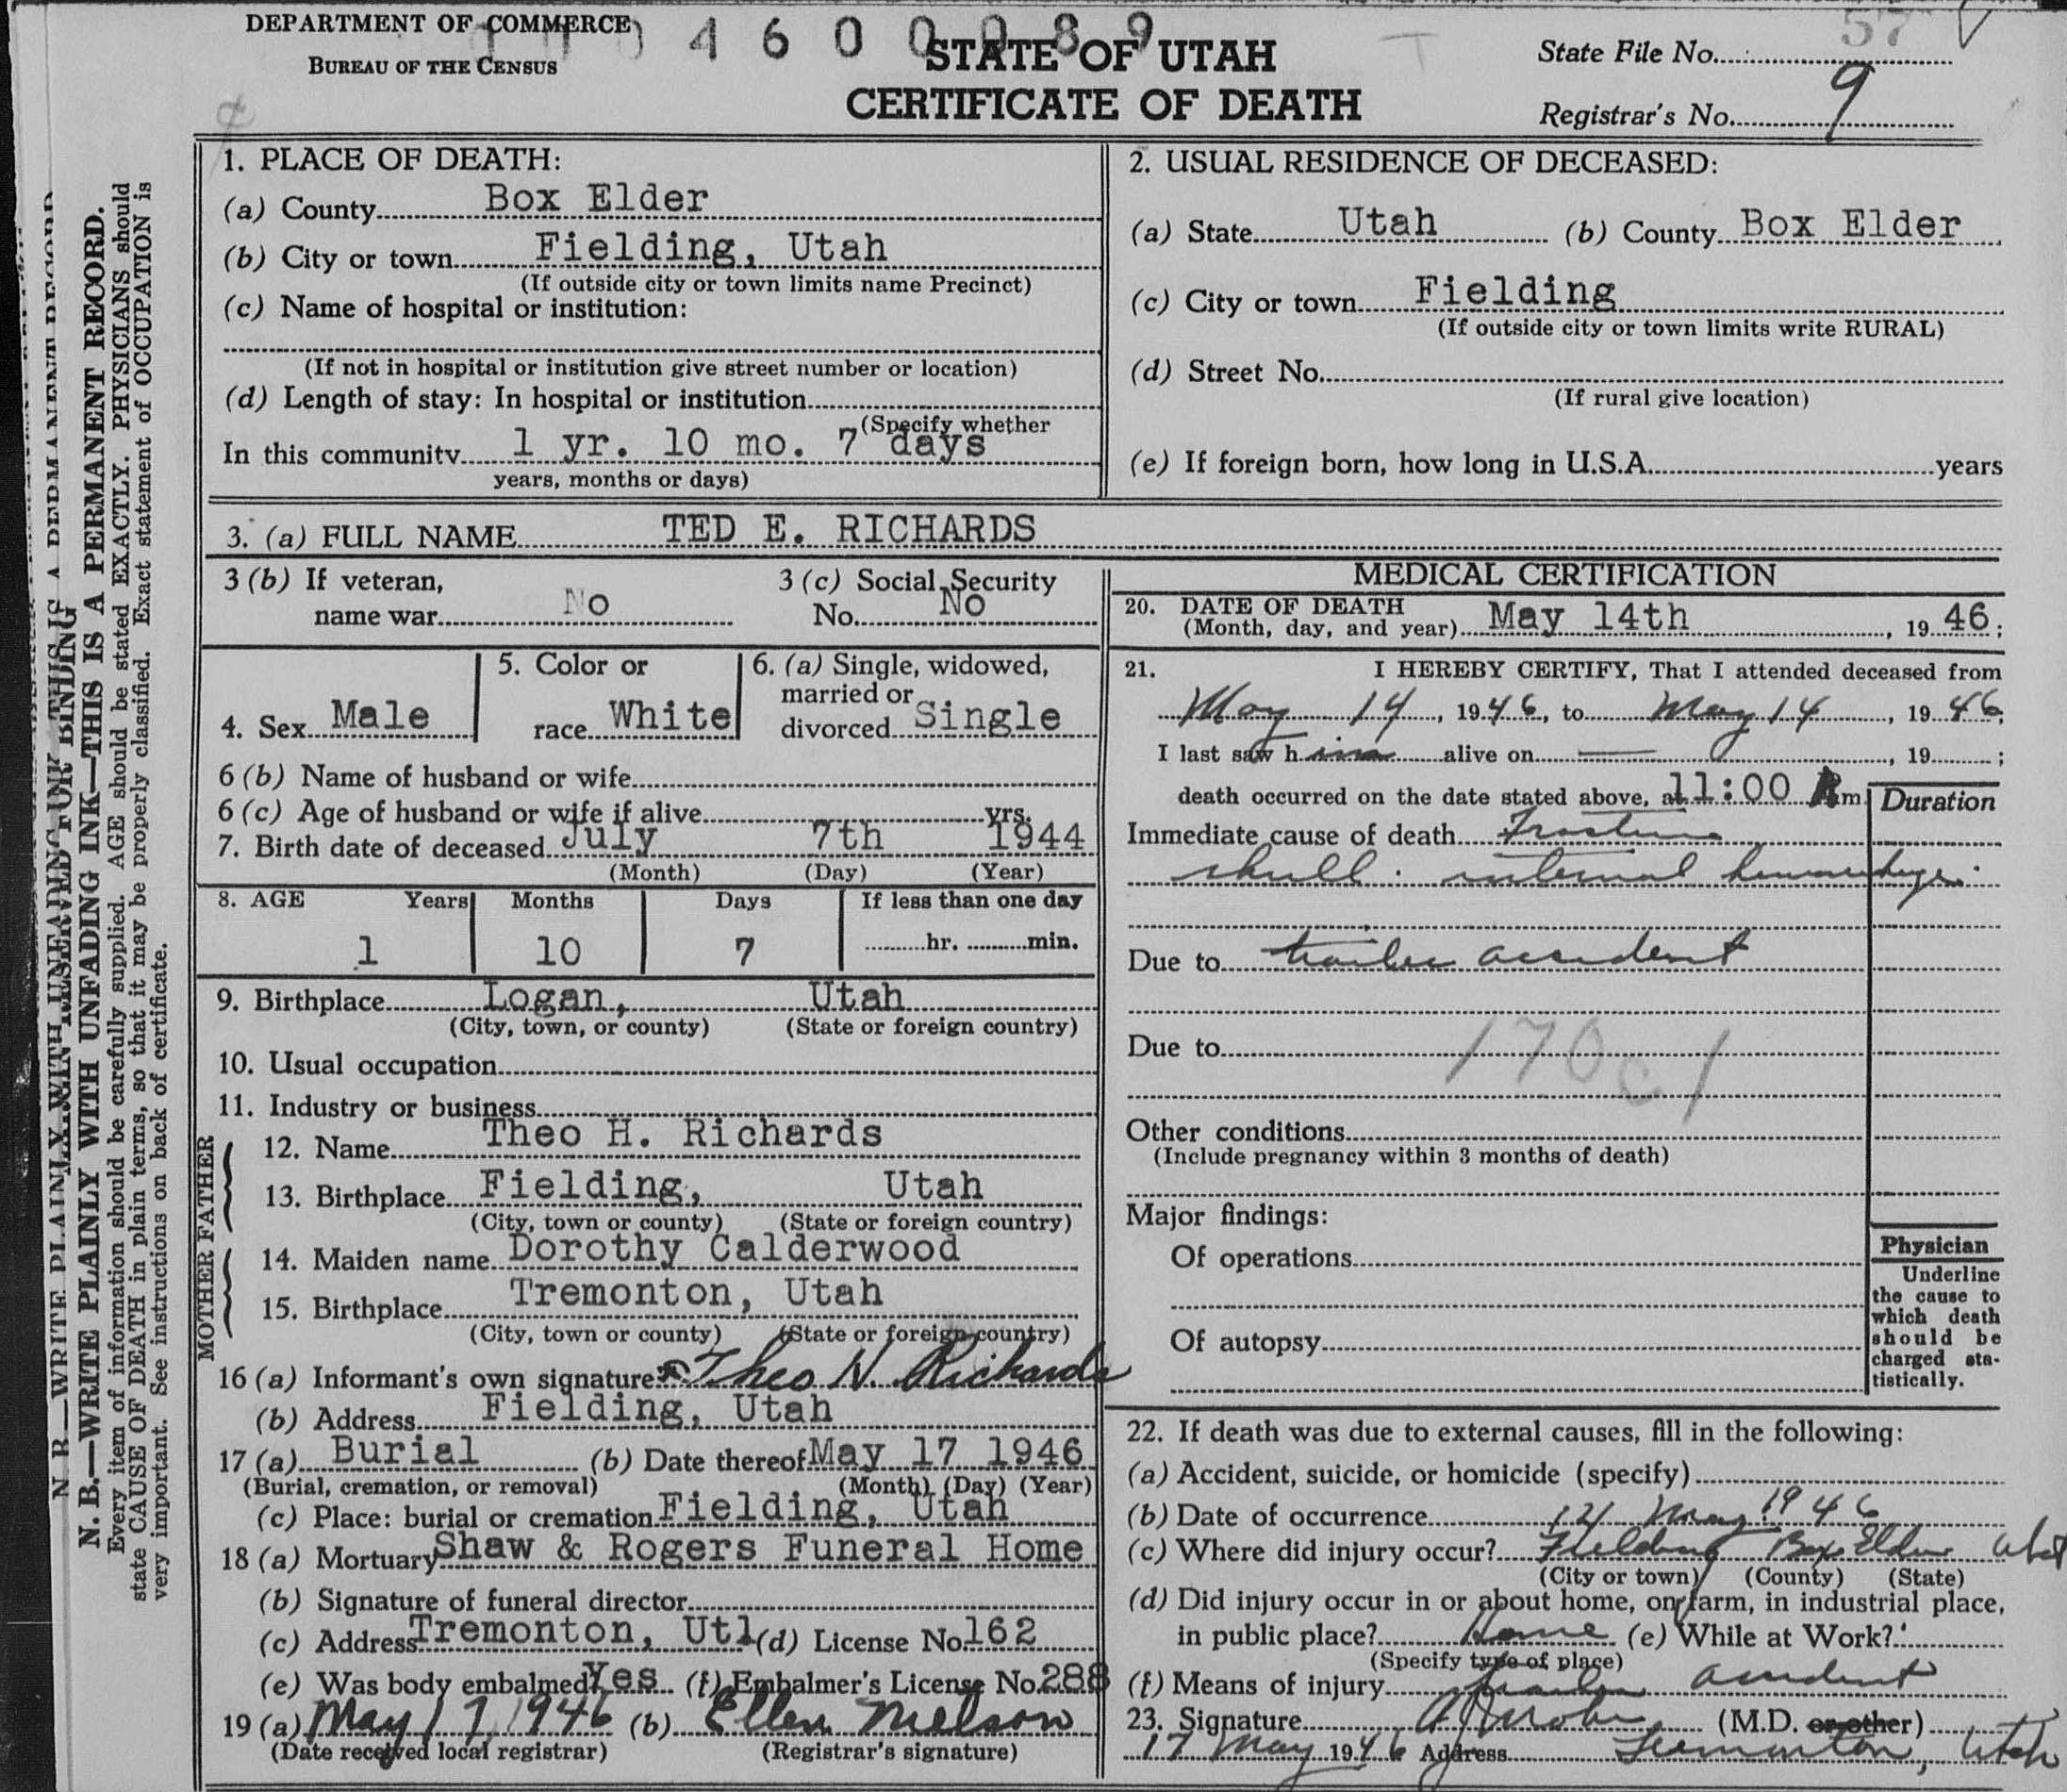 DEPARTMENT OF COMMERCE
BUREAU OF THE CENSUS
4 6 0 0 0 8 9
STATE OF UTAH
CERTIFICATE OF DEATH
State File No. 57
Registrar's No. 9
N. B.—WRITE PLAINLY WITH UNFADING INK—THIS IS A PERMANENT RECORD.
Every item of information should be carefully supplied. AGE should be stated EXACTLY. PHYSICIANS should
state CAUSE OF DEATH in plain terms, so that it may be properly classified. Exact statement of OCCUPATION is
very important. See instructions on back of certificate.
RESERVED FOR BINDING
1. PLACE OF DEATH:
(a) County Box Elder
(b) City or town Fielding, Utah
(If outside city or town limits name Precinct)
(c) Name of hospital or institution:
(If not in hospital or institution give street number or location)
(d) Length of stay: In hospital or institution
(Specify whether
In this community 1 yr. 10 mo. 7 days
years, months or days)
2. USUAL RESIDENCE OF DECEASED:
(a) State Utah (b) County Box Elder
(c) City or town Fielding
(If outside city or town limits write RURAL)
(d) Street No.
(If rural give location)
(e) If foreign born, how long in U.S.A. years
3. (a) FULL NAME TED E. RICHARDS
3 (b) If veteran,
name war No
3 (c) Social Security
No. No
4. Sex Male
5. Color or
race White
6. (a) Single, widowed,
married or
divorced Single
6 (b) Name of husband or wife
6 (c) Age of husband or wife if alive yrs.
7. Birth date of deceased July 7th 1944
(Month) (Day) (Year)
8. AGE Years Months Days If less than one day
1 10 7 hr. min.
9. Birthplace Logan, Utah
(City, town, or county) (State or foreign country)
10. Usual occupation
11. Industry or business
FATHER
12. Name Theo H. Richards
13. Birthplace Fielding, Utah
(City, town or county) (State or foreign country)
MOTHER
14. Maiden name Dorothy Calderwood
15. Birthplace Tremonton, Utah
(City, town or county) (State or foreign country)
16 (a) Informant's own signature Theo H. Richards
(b) Address Fielding, Utah
17 (a) Burial (b) Date thereof May 17 1946
(Burial, cremation, or removal) (Month) (Day) (Year)
(c) Place: burial or cremation Fielding, Utah
18 (a) Mortuary Shaw & Rogers Funeral Home
(b) Signature of funeral director
(c) Address Tremonton, Utl (d) License No. 162
(e) Was body embalmed? Yes (f) Embalmer's License No. 288
19 (a) May 17, 1946 (b) Ellen Nielson
(Date received local registrar) (Registrar's signature)
MEDICAL CERTIFICATION
20. DATE OF DEATH
(Month, day, and year) May 14th, 19 46;
21. I HEREBY CERTIFY, That I attended deceased from
May 14, 1946, to May 14, 19 46;
I last saw him alive on —, 19 ;
death occurred on the date stated above, at 11:00 A m.
Duration
Immediate cause of death Fracture
skull : internal hemorrhage.
Due to trailer accident
Due to
170c1
Other conditions
(Include pregnancy within 3 months of death)
Major findings:
Of operations
Of autopsy
Physician
Underline
the cause to
which death
should be
charged sta-
tistically.
22. If death was due to external causes, fill in the following:
(a) Accident, suicide, or homicide (specify)
(b) Date of occurrence May 1946
(c) Where did injury occur? Fielding Box Elder Utah
(City or town) (County) (State)
(d) Did injury occur in or about home, on farm, in industrial place,
in public place? Home (e) While at Work?
(Specify type of place)
(f) Means of injury trailer accident
23. Signature (M.D. or other)
17 May 1946 Address Tremonton, Utah